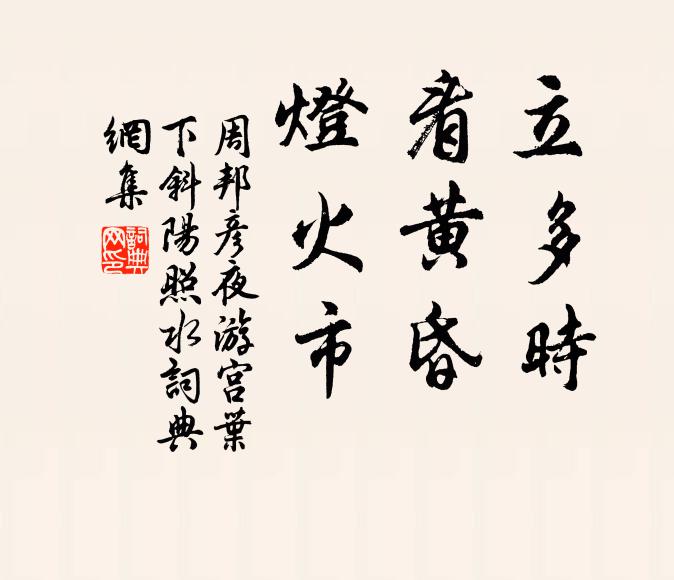 立多時
看黄昏
燈火市
周邦彦夜游宫葉
下斜陽照水詞典
網集
詞典
网印